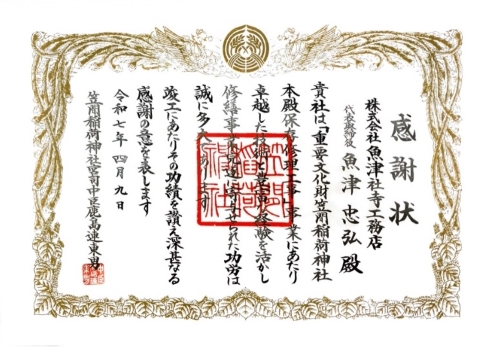 感謝状
株式会社魚津社寺工務店
代表取締役 魚津忠弘殿
貴社は「重要文化財笠間稲荷神社
本殿保存修理工事」事業にあたり
卓越した技術と豊富な経験を活かし
修繕事業完遂に寄せられた功労は
誠に多大であります
竣工にあたりその功績を讃え深甚なる
感謝の意を表します
令和七年四月九日
笠間稲荷神社宮司中臣鹿島連東男
笠間稲荷神社